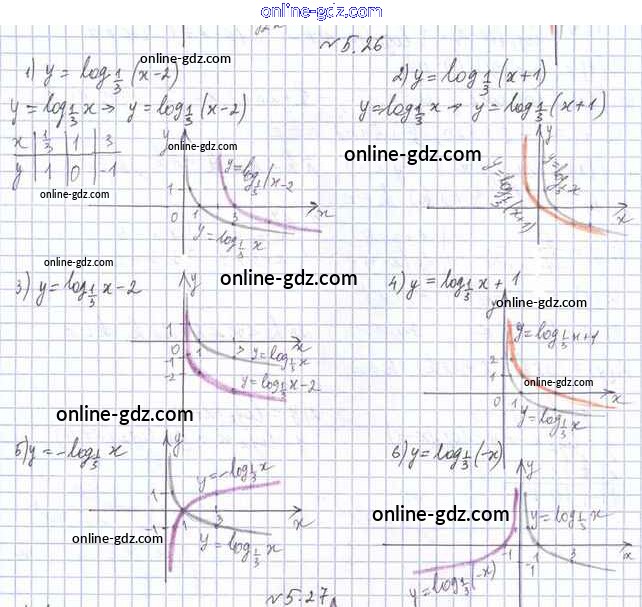 online-gdz.com
№5.26
1) y = log_{1/3}(x-2)
online-gdz.com
y = log_{1/3} x → y = log_{1/3}(x-2)
x | 1/3 | 1 | 3
y | 1 | 0 | -1
online-gdz.com
online-gdz.com
y
1
0 1 3 x
y = log_{1/3}(x-2
y = log_{1/3} x
2) y = log_{1/3}(x+1)
y = log_{1/3} x → y = log_{1/3}(x+1)
online-gdz.com
y
y = log_{1/3}(x+1)
y = log_{1/3} x
x
3) y = log_{1/3} x - 2
online-gdz.com
online-gdz.com
y
1
0 1 x
-1
-2
y = log_{1/3} x
y = log_{1/3} x - 2
online-gdz.com
4) y = log_{1/3} x + 1
online-gdz.com
y
y = log_{1/3} x + 1
2
1
online-gdz.com
0 1 x
y = log_{1/3} x
5) y = -log_{1/3} x
y
y = -log_{1/3} x
1
1 3 x
-1
y = log_{1/3} x
online-gdz.com
6) y = log_{1/3}(-x)
y
online-gdz.com
y = log_{1/3} x
-1 1 3 x
-1
y = log_{1/3}(-x)
№5.27